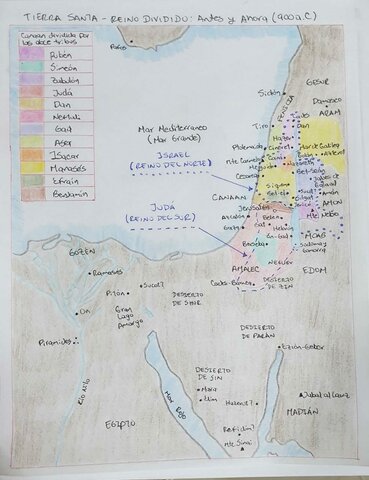 TIERRA SANTA - REINO DIVIDIDO: Antes y Ahora (900 a.C)
Canaan dividida por
las doce tribus
Rubén
Simeón
Zabulón
Judá
Dan
Neftalí
Gad
Aser
Isacar
Manasés
Efraín
Benjamín
Mar Mediterráneo
(Mar Grande)
ISRAEL
(REINO DEL NORTE)
JUDÁ
(REINO DEL SUR)
CANAAN
Sidón
FENICIA
GESUR
Damasco
ARAM
Tiro
Dan
Hazor
Ptolemaida
Mte Carmelo
Cesarea
Siquem
Jerusalén
Belén
Gat
Hebrón
En-Gadi
Beerseba
NEGUEV
AMALEC
Cades-Barnea
DESIERTO
DE ZIN
AMON
Mte. Nebo
MOAB
Sodoma y
Gomorra
EDOM
GOZÉN
Rameses
Pitón
Sucot?
On
Gran
Lago
Amargo
Pirámides
RÍO NILO
DESIERTO
DE SHUR
DESIERTO
DE PARÁN
Ezión-Geber
DESIERTO
DE SIN
Mara
Elim
MAR ROJO
Refidim?
Mte Sinaí
Jabal al Lawz
MADIÁN
EGIPTO